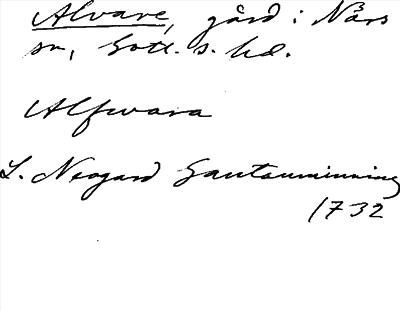 Alvare, gård i Närs
sn, Gotl. s. hd.
Alfwara
L. Neogard Gautauminning
1732